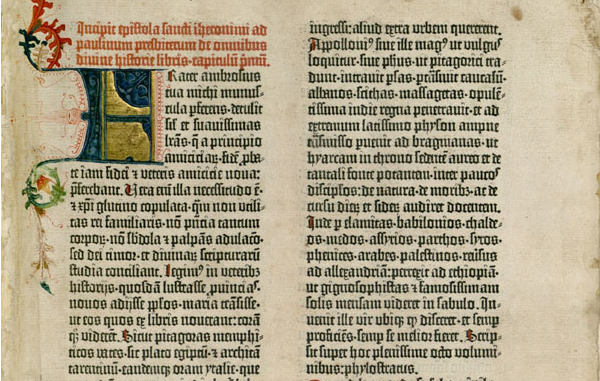 Incipit epistola sancti iheronimi ad
paulinum presbiterum de omnibus
divine historie libris. capitulū pꝛmū.
Frater ambrosius
tua michi munus-
cula ꝑferens. detulit
sił et suavissimas
lr̄as. q̄ a principio
amiciciaꝝ. fidē ꝓba-
te iam fidei et veteris amicicie nova:
p̄ferebant. Vera eni illa necessitudo ē.
et xp̄i glutino copulata. qm̄ non utili-
tas rei familiaris. nō p̄ncia tantum
corpoꝝ. nō s̄bdola et palpās adulacō.
sed dei timor. et divinaꝝ scripturarū
studia conciliant. Legimꝰ in veteribꝫ
historijs. quosdā lustrasse. ꝓuincias.
novos adijsse pplos. maria trāsisse.
ut eos quos ex libris noverant: corā
qꝫ viderēt. Sicut pitagoras memphi-
ticos vates. sic plato egiptū. et architā
tarentinū. eandemqꝫ oram ytalie. que
ingressi: aliud extra urbem quererent.
Appolloniꝰ siue ille magꝰ ut vulgꝰ
loquitur. siue ph̄us. ut pitagorici tra-
dunt. intrauit ꝑsas. ꝑtrāsiuit caucasū.
albanos. scithas. massagetas. opulē-
tissima indie regna penetrauit. et ad
extremum latissimo physon ampne
trāsmisso ꝑuenit ad bragmanas. ut
hyarcam in throno sedentē aureo et de
tantali fonte potantem. inter paucos
discipl̄os: de natura. de moribꝫ ac de
cursu dieꝝ et sideꝝ audiret docentem.
Inde ꝑ elamitas. babilonios. chalde-
os. medos. assyrios. parthos. syros.
phenices. arabes. palestinos. reūsus
ad allexandriā: perrexit ad ethiopiā.
ut gignosophistas et famosissimam
solis mensam videret in sabulo. In-
uenit ille vir ubiqꝫ qd̄ disceret. et semꝑ
proficiēs. semꝑ se melior fieret. Scrip-
sit super hoc plenissime octo volumi-
nibus: phylostratus.